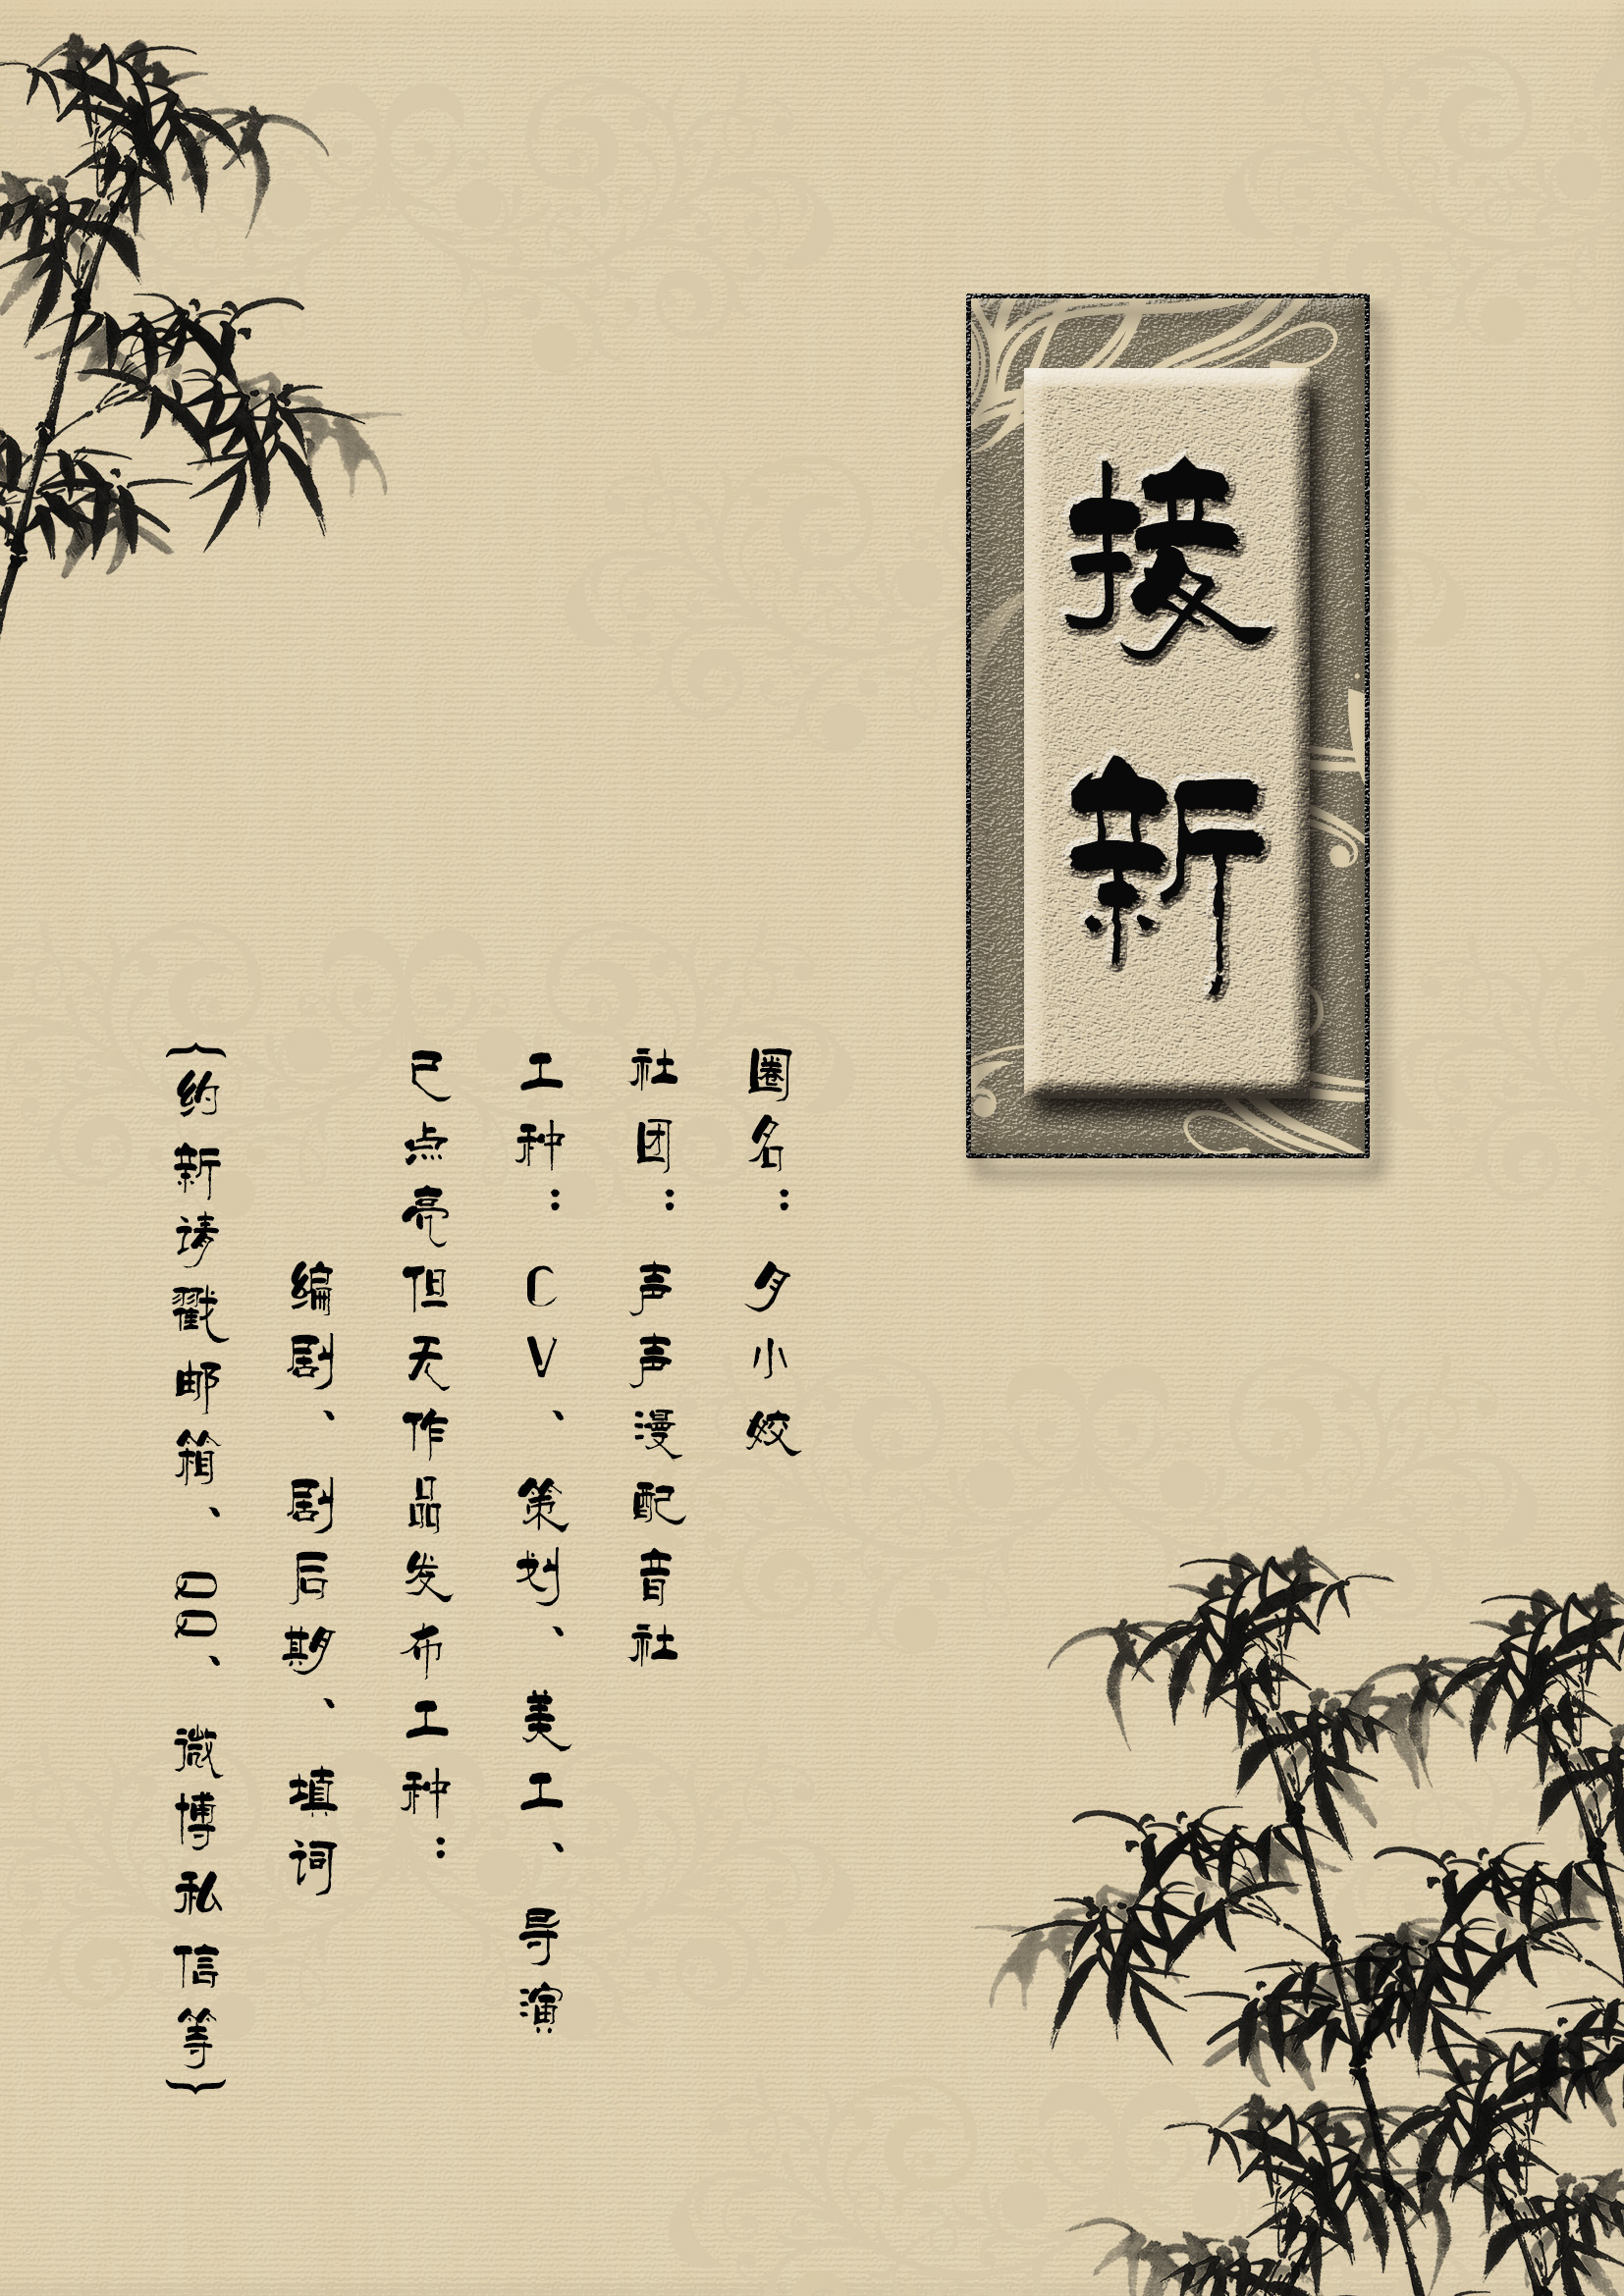 接新
圈名：夕小姣
社团：声声漫配音社
工种：CV、策划、美工、导演
已点亮但无作品发布工种：
编剧、剧后期、填词
（约新请戳邮箱、QQ、微博私信等）